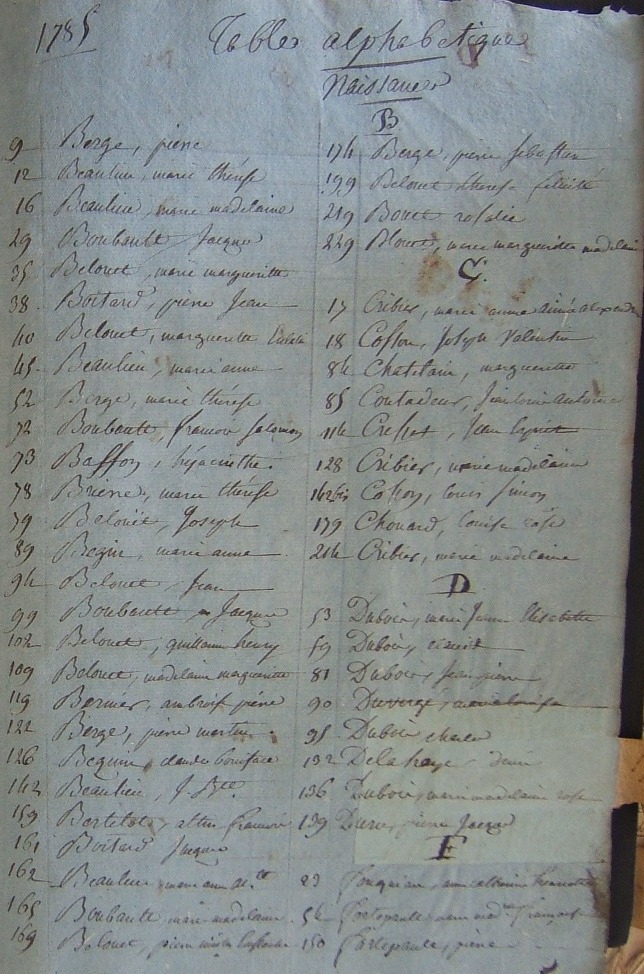 1785 Tables alphabetiques
Naissances
9 Berge, pierre
12 Beaulieu, marie thérèse
16 Beaulieu, marie madelaine
29 Boubault, Jacques
35 Belouet, marie margueritte
38 Boitard, pierre Jean
40 Belouet, margueritte
45 Beaulieu, marie anne
52 Berge, marie thérèse
72 Boubault, francois Salomon
73 Baffoy, hyacinthe
78 Briere, marie thérèse
79 Belouet, Joseph
89 Begin, marie anne
94 Belouet, Jean
99 Boubault, Jacques
102 Belouet, guillaume henry
109 Belouet, madelaine margueritte
119 Bernier, ambroise pierre
122 Berge, pierre martin
126 Beguin, claude boniface
142 Beaulieu, J. Bte
159 Bertelot, francois
161 Boitard Jacques
162 Beaulieu, marie anne
165 Boubault, marie madelaine
169 Belouet, pierre
B
174 Berge, pierre sebastien
199 Belouet therese felicité
219 Bouet rosalie
229 marie margueritte madelaine
C.
17 Cribier, marie anne aimée alexandre
18 Cosson, Joseph Valentin
84 Chatelain, margueritte
85 Contadeur, Jean louis antoine
114 Jean
128 Cribier, marie madelaine
162bis louis Simon
179 Chouard, louise rose
214 Cribier, marie madelaine
D
53 Dubois, marie Jeanne Elisabette
59 Dubois,
81 Dubois, Jean pierre
90 Duvergé, marie louise
95 Dubois charles
132 Delahaye
136 Dubois, marie madelaine rose
139 pierre Jacques
F
23
54 Fortepaulle
150 Fortepaulle, pierre